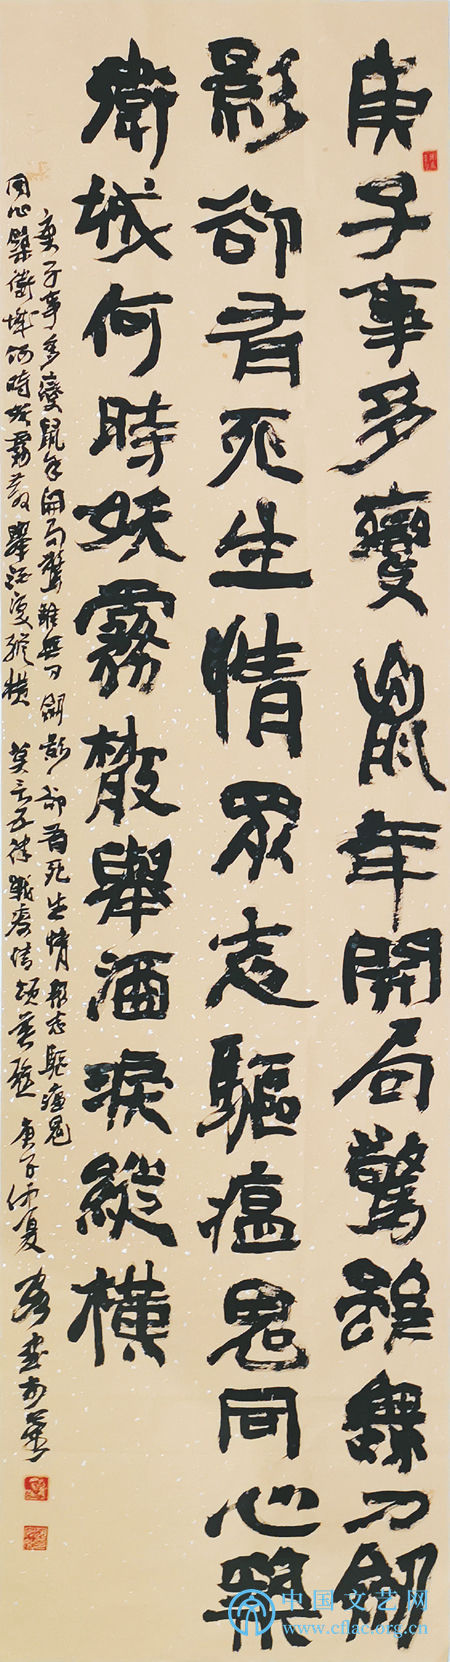 庚子事多變鼠年開局驚雖無刀劍
影卻有死生情眾志驅瘟鬼同心築
衛城何時妖霧散舉酒淚縱橫
庚子事多變鼠年開局驚雖無刀劍影卻有死生情眾志驅瘟鬼
同心築衛城何時妖霧散舉酒淚縱橫 莫言五律戰疫情頌英雄 庚子仲夏
中国文艺网
www.cflac.org.cn